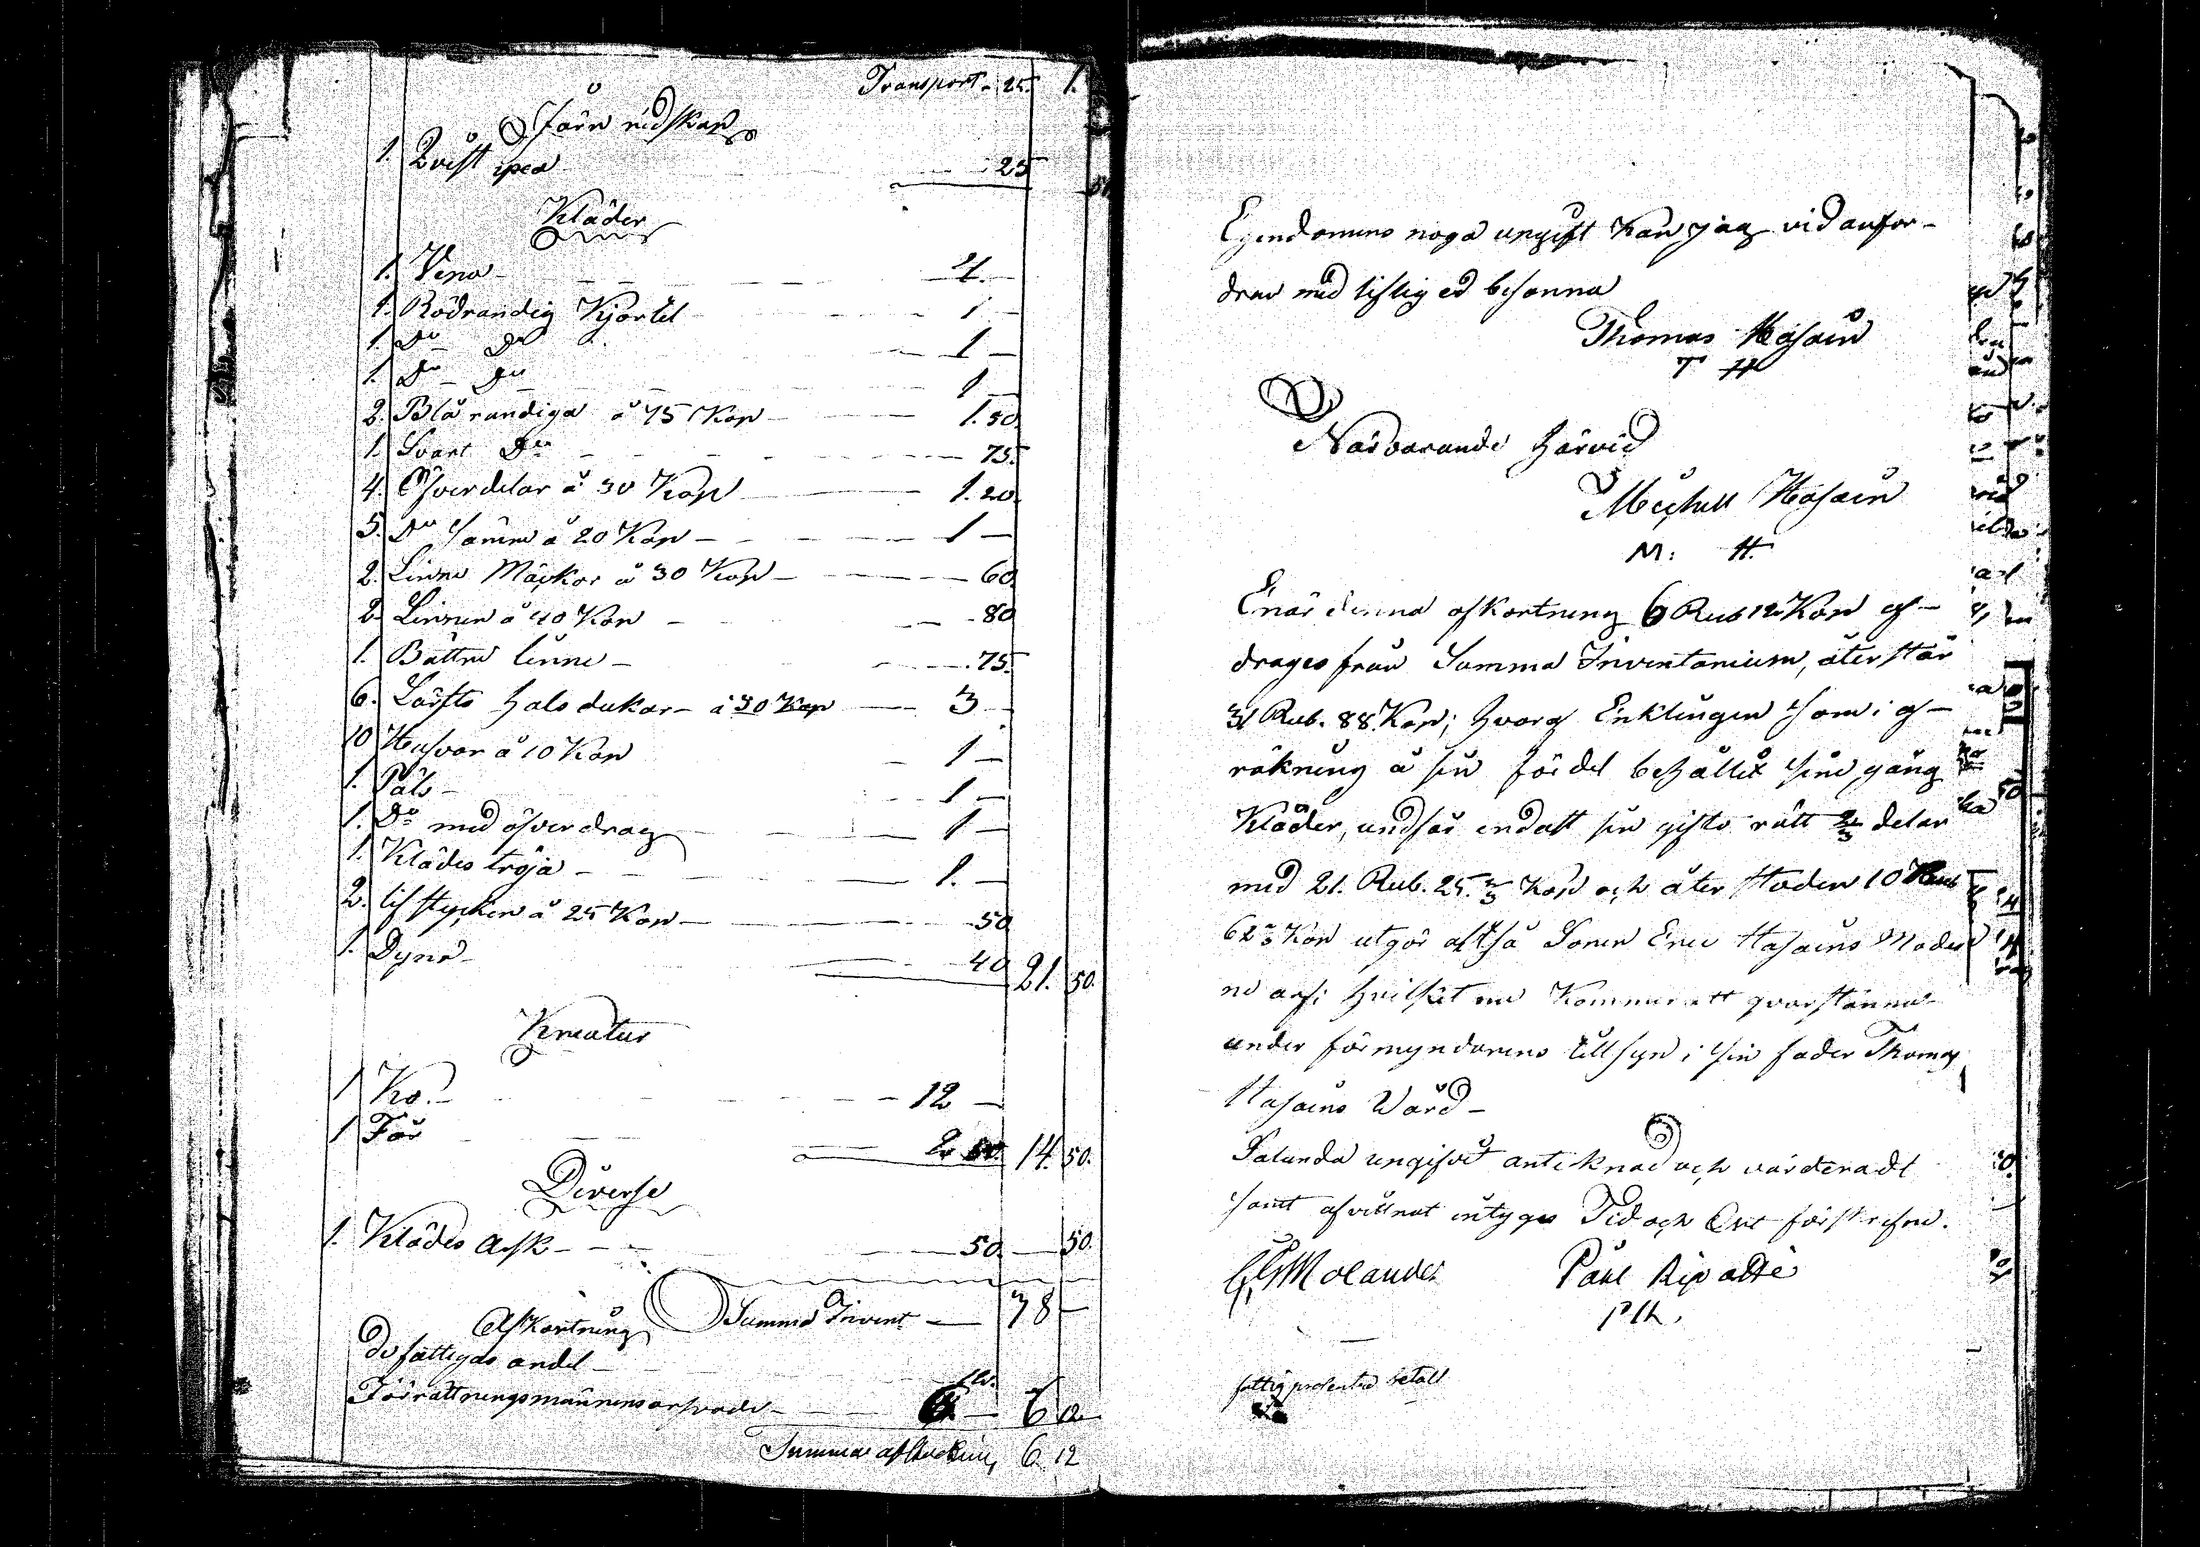 Transport - 25. 1.
Järn redskap
1. Qvist 25
Kläder
1. 4. —
1. Rödrandig Kjortel 1 —
1. Do Do 1 —
1. Do Do 1 —
2. Blå randiga à 75 Kop 1. 50.
1. Svart Do 75.
4. Öfverdelar à 30 Kop 1. 20.
5. Do sämre à 20 Kop 1 —
2. Linne à 30 Kop 60.
2. Linnen à 40 Kop 80
1. Bättre linne 75.
6. Lärfts halsdukar à 50 Kop 3 —
10 Hufvor à 10 Kop 1 —
1. Päls 1 —
1. Do med öfverdrag 1 —
1. Klädes tröja 1. —
2. lifstycken à 25 Kop 50
1. Dyna 40 21. 50.
Kreatur
1 Ko. 12 —
1 Får 2. 50. 14. 50.
Diverse
1. Klädes Ask 50. — 50.
Summa Invent — 38 —
Afkortning
De fattigas andel 12.
Förrättningsmännens arfvode 6 — 6 12
Summa afkortning 6 12
Egendomens noga uppgift kan jag vid anfor-
dran med liflig ed besanna
Thomas Hasain
T H
Närvarande härvid
Michell Hasain
M: H.
Enär denna afkortning 6 Rub 12 Kop af-
drages från Summa Inventarium, återstår
31 Rub. 88 Kop; hvaraf Enklingen som i af-
räkning å sin fördel behållit sine gång
Kläder, undfår endast sin gifto rätt 2/3 delar
med 21. Rub. 25. 1/3 Kop och åter stoden 10 Rub
62 2/3 Kop utgör altså Sonen Eric Hasains Moder
ne arf; hvilket nu kommer att qvarstanna
under förmyndarens tillsyn i sin fader Thomas
Hasains Vård —
Salunda uppgifvit antecknad och värderadt
samt afvittnat intygas Tid och Ort förskrifne.
Molander Påhl
fattigprocenten betalt